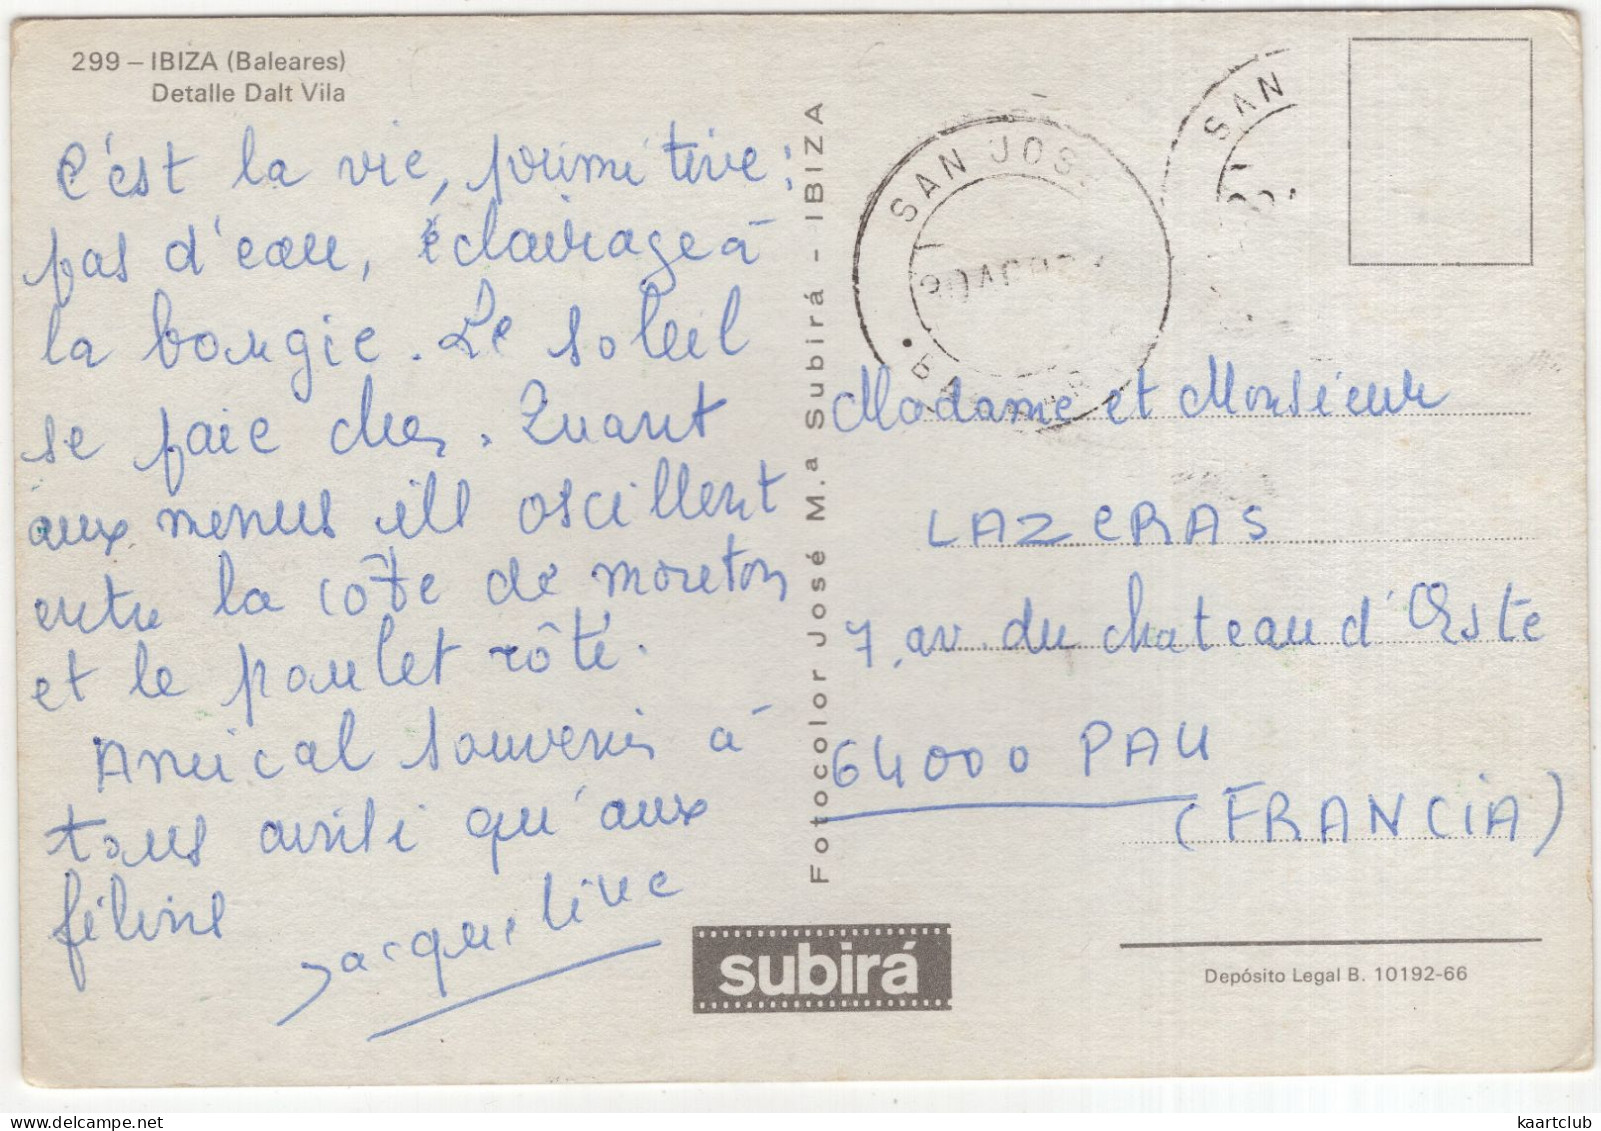 299 – IBIZA (Baleares)
Detalle Dalt Vila
C'est la vie, primitive :
pas d'eau, éclairage à
la bougie. Le soleil
se faie cher. Quant
aux menus ils oscillent
entre la côte de mouton
et le poulet rôti.
Amical souvenir à
tous ainsi qu'aux
félins
Jacqueline
Fotocolor José M.a Subirá - IBIZA
subirá
SAN JOS
SAN
Madame et Monsieur
LAZERAS
7, av. du chateau d'Este
64000 PAU
(FRANCIA)
Depósito Legal B. 10192-66
kaartclub